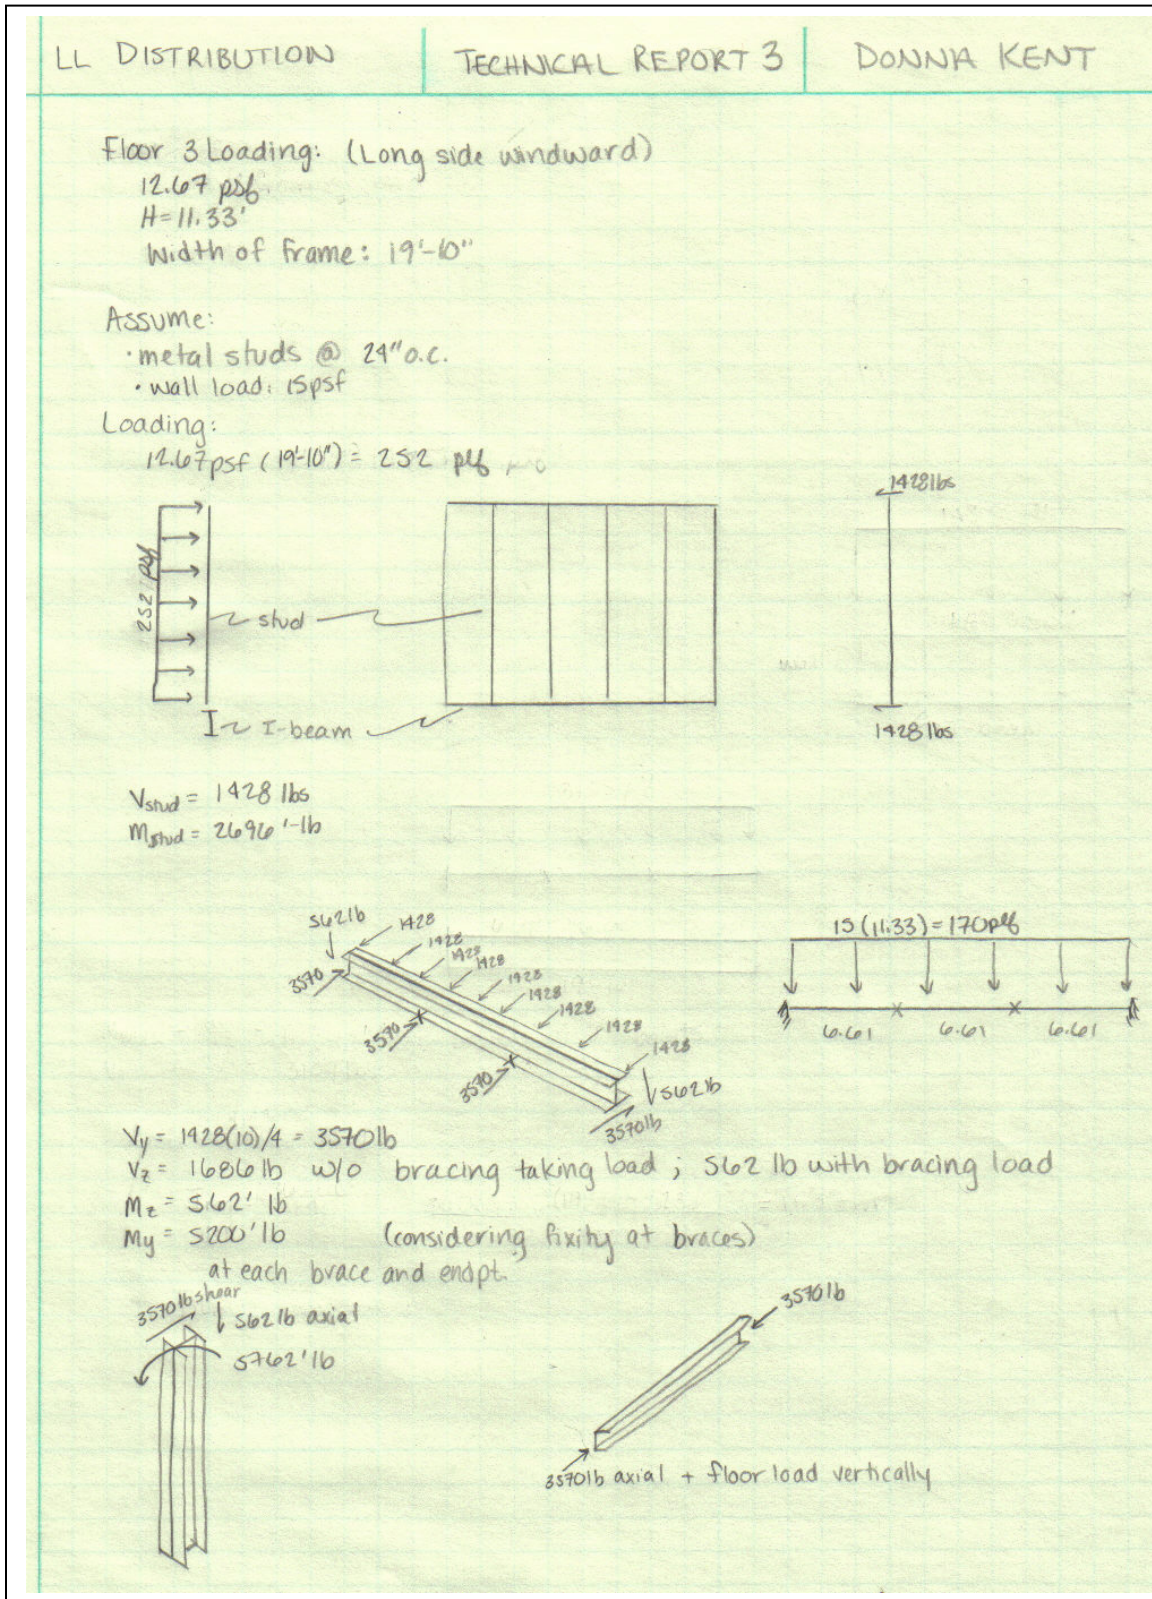 LL DISTRIBUTION
TECHNICAL REPORT 3
DONNA KENT
Floor 3 Loading: (Long side windward)
12.67 psf
H=11.33'
Width of frame: 19'-10"
Assume:
· metal studs @ 24" o.c.
· wall load: 15psf
Loading:
12.67psf (19'-10") = 252 plf
252 plf
stud
I-beam
1428lbs
1428 lbs
Vstud = 1428 lbs
Mstud = 2696 '-lb
562lb
1428
1428
1428
1428
1428
1428
1428
1428
1428
3570
3570
3570
3570lb
562lb
15 (11.33) = 170plf
6.61
6.61
6.61
Vy = 1428(10)/4 = 3570lb
Vz = 1686lb w/o bracing taking load ; 562 lb with bracing load
Mz = 562' lb
My = 5200'lb (considering fixity at braces)
at each brace and endpt.
3570lb shear
562lb axial
5762'lb
3570lb
3570lb axial + floor load vertically